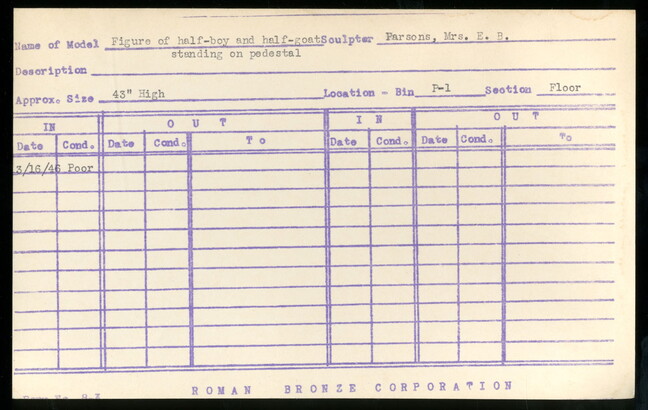 Name of Model Figure of half-boy and half-goat Sculptor Parsons, Mrs. E. B.
standing on pedestal
Description
Approx. Size 43" High Location - Bin P-1 Section Floor
IN OUT IN OUT
Date Cond. Date Cond. To Date Cond. Date Cond. To
3/16/46 Poor
ROMAN BRONZE CORPORATION